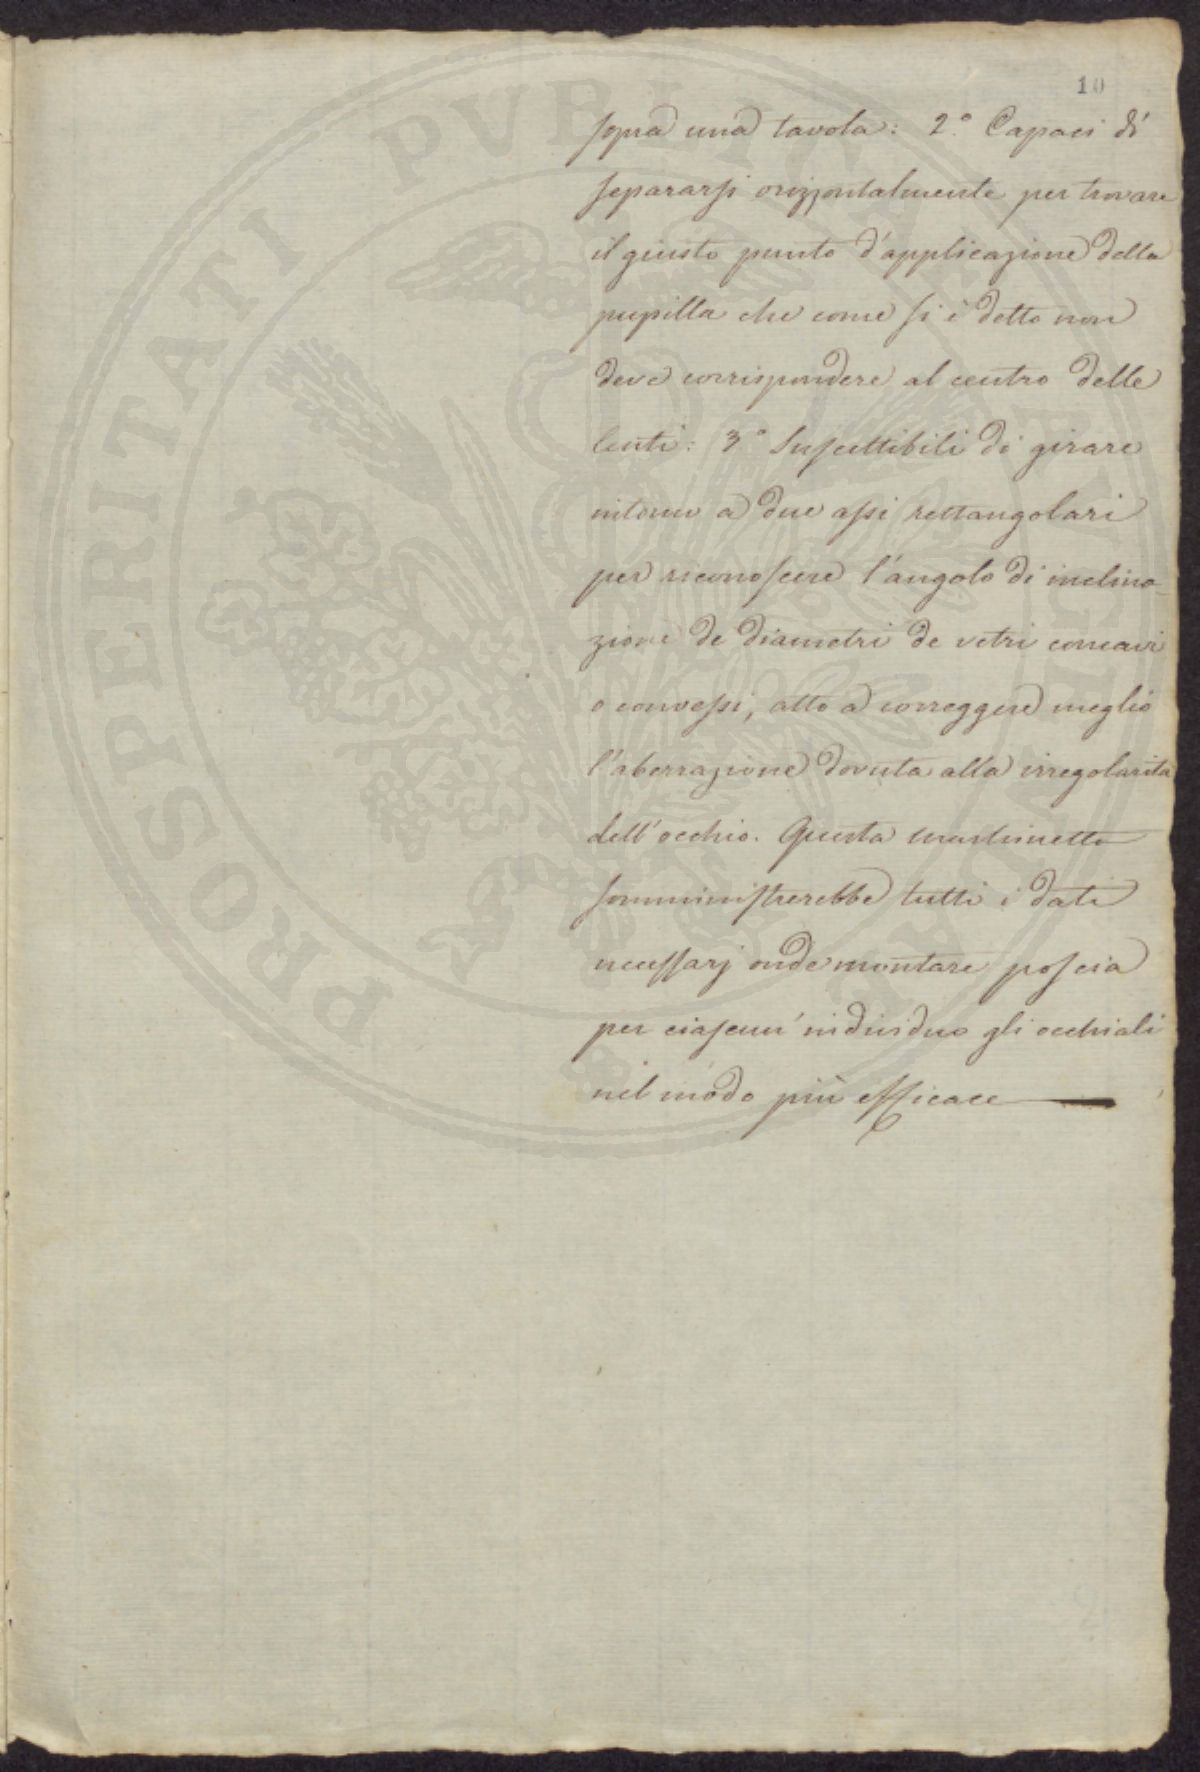 10
sopra una tavola: 2.° Capaci di
separarsi orizzontalmente per trovare
il giusto punto d'applicazione della
pupilla che come si è detto non
deve corrispondere al centro delle
lenti: 3° Suscettibili di girare
intorno a due assi rettangolari
per riconoscere l'angolo di inclina-
zione de diametri de vetri concavi
o convessi, atto a correggere meglio
l'aberrazione dovuta alla irregolarità
dell'occhio. Questa macchinetta
somministrerebbe tutti i dati
necessarj onde montare poscia
per ciascun' individuo gli occhiali
nel modo più efficace
PROSPERITATI PVBLICAE AVGENDAE